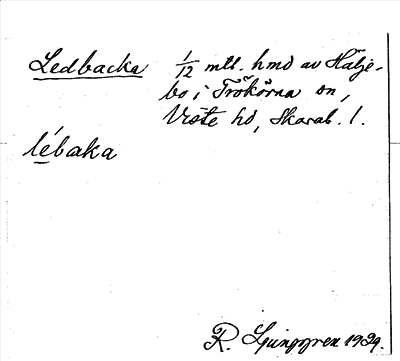 Ledbacka 1/12 mtl. hmd av Hälje-
bo i Trökörna sn,
Viste hd, Skarab. l.
lébaka
R. Ljunggren 1929.